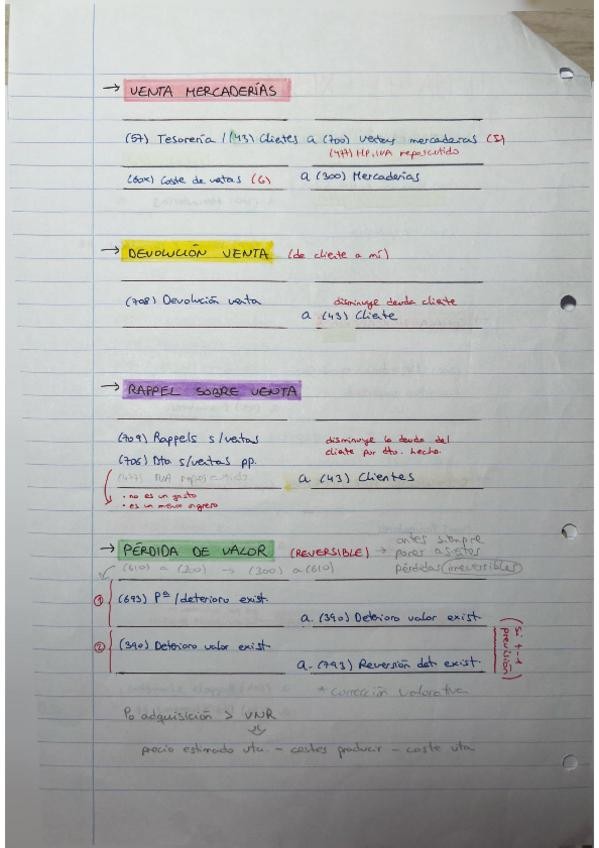 → VENTA MERCADERÍAS
(57) Tesorería / (43) Clientes a (700) ventas mercaderías (I)
(477) HP, IVA repercutido
(60x) Coste de vetas (G) a (300) Mercaderías
→ DEVOLUCIÓN VENTA (de cliente a mí)
(708) Devolución venta disminuye deuda cliente
a (43) Cliente
→ RAPPEL SOBRE VENTA
(709) Rappels s/ventas disminuye la deuda del
(706) Dto s/ventas pp. cliente por dto. hecho.
(477) IVA repercutido a (43) Clientes
· no es un gasto
· es un menor ingreso
→ PÉRDIDA DE VALOR (REVERSIBLE) → antes siempre
pérdidas irreversibles
(610) a (300) → (300) a (610)
① (693) Pª/deterioro exist.
a. (390) Deterioro valor exist.
② (390) Deterioro valor exist.
a. (793) Reversión det exist.
(Si t-1 previsión)
* corrección valorativa
Po adquisición > VNR
precio estimado vta. - costes producir - coste vta